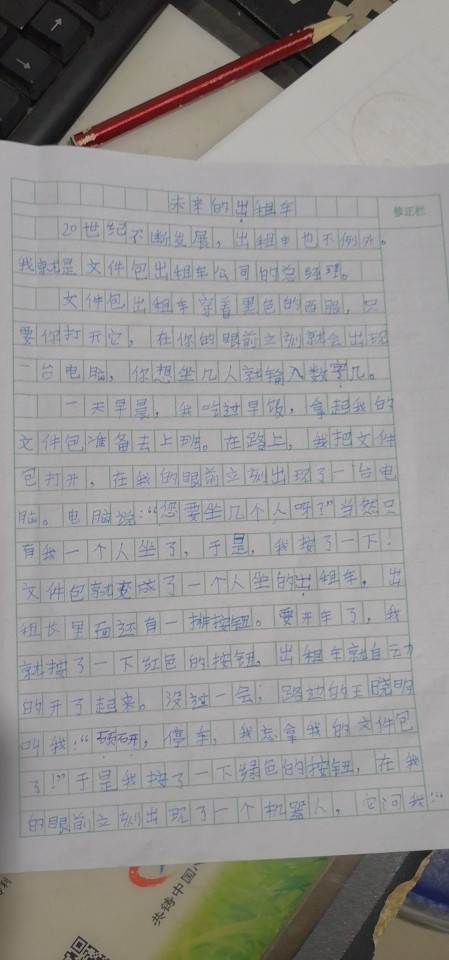 未来的出租车
修正栏
20世纪不断发展，出租车也不例外。
我就是文件包出租车公司的总经理。
文件包出租车穿着黑色的西服，只
要你打开它，在你的眼前立刻就会出现
一台电脑，你想坐几人就输入数字几。
一天早晨，我吃过早饭，拿起我的
文件包准备去上班。在路上，我把文件
包打开，在我的眼前立刻出现了一台电
脑。电脑说：“您要坐几个人呀？”当然只
有我一个人坐了，于是，我按了一下1
文件包就变成了一个人坐的出租车，出
租长里面还有一排按钮。要开车了，我
就按了一下红色的按钮，出租车就自动
的开了起来。没过一会；路边的王晓明
叫我：“，停车，我忘拿我的文件包
了！”于是我按了一下绿色的按钮，在我
的眼前立刻出现了一个机器人，它问我：“
共铸中国